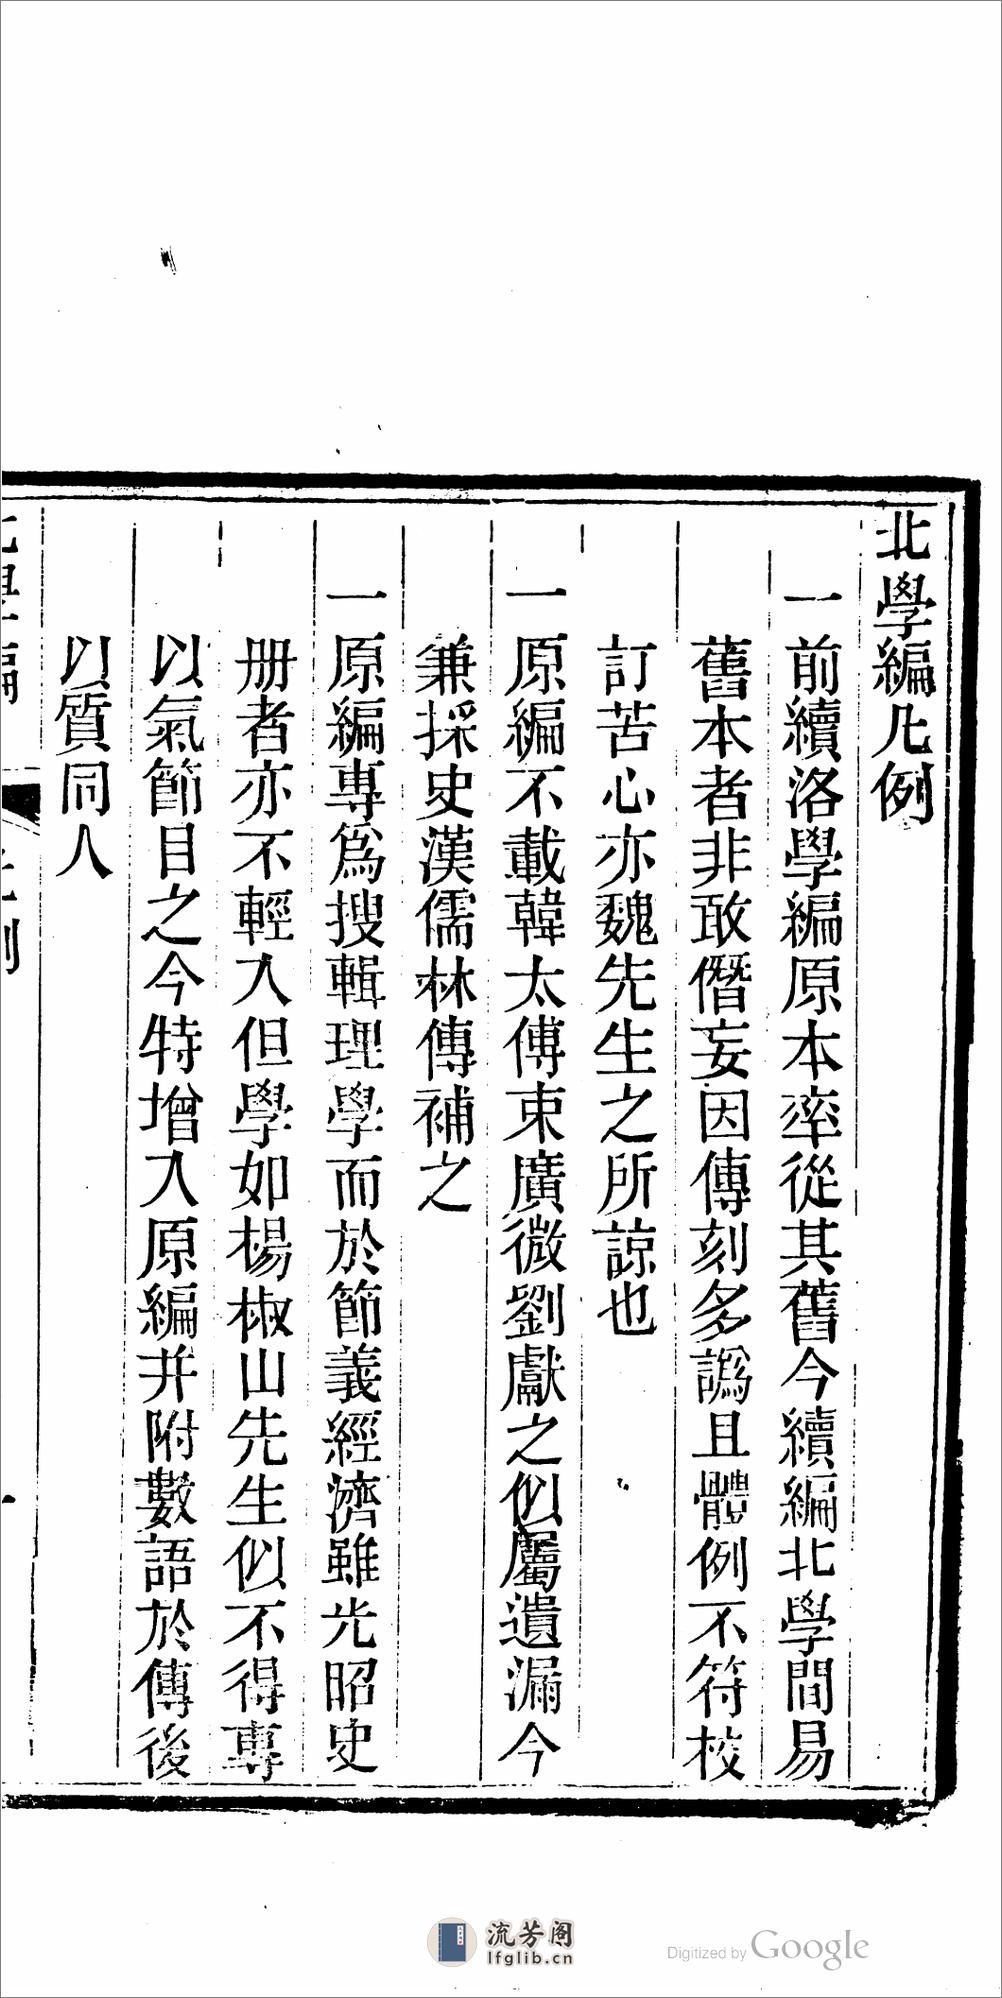 北學編凡例
一前續洛學編原本率從其舊今續編北學間易
舊本者非敢僭妄因傳刻多譌且體例不符校
訂苦心亦魏先生之所諒也
一原編不載韓太傅束廣微劉獻之似屬遺漏今
兼採史漢儒林傳補之
一原編專爲搜輯理學而於節義經濟雖光昭史
册者亦不輕入但學如楊椒山先生似不得專
以氣節目之今特增入原編并附數語於傳後
以質同人
流芳阁
lfglib.cn
Digitized by Google